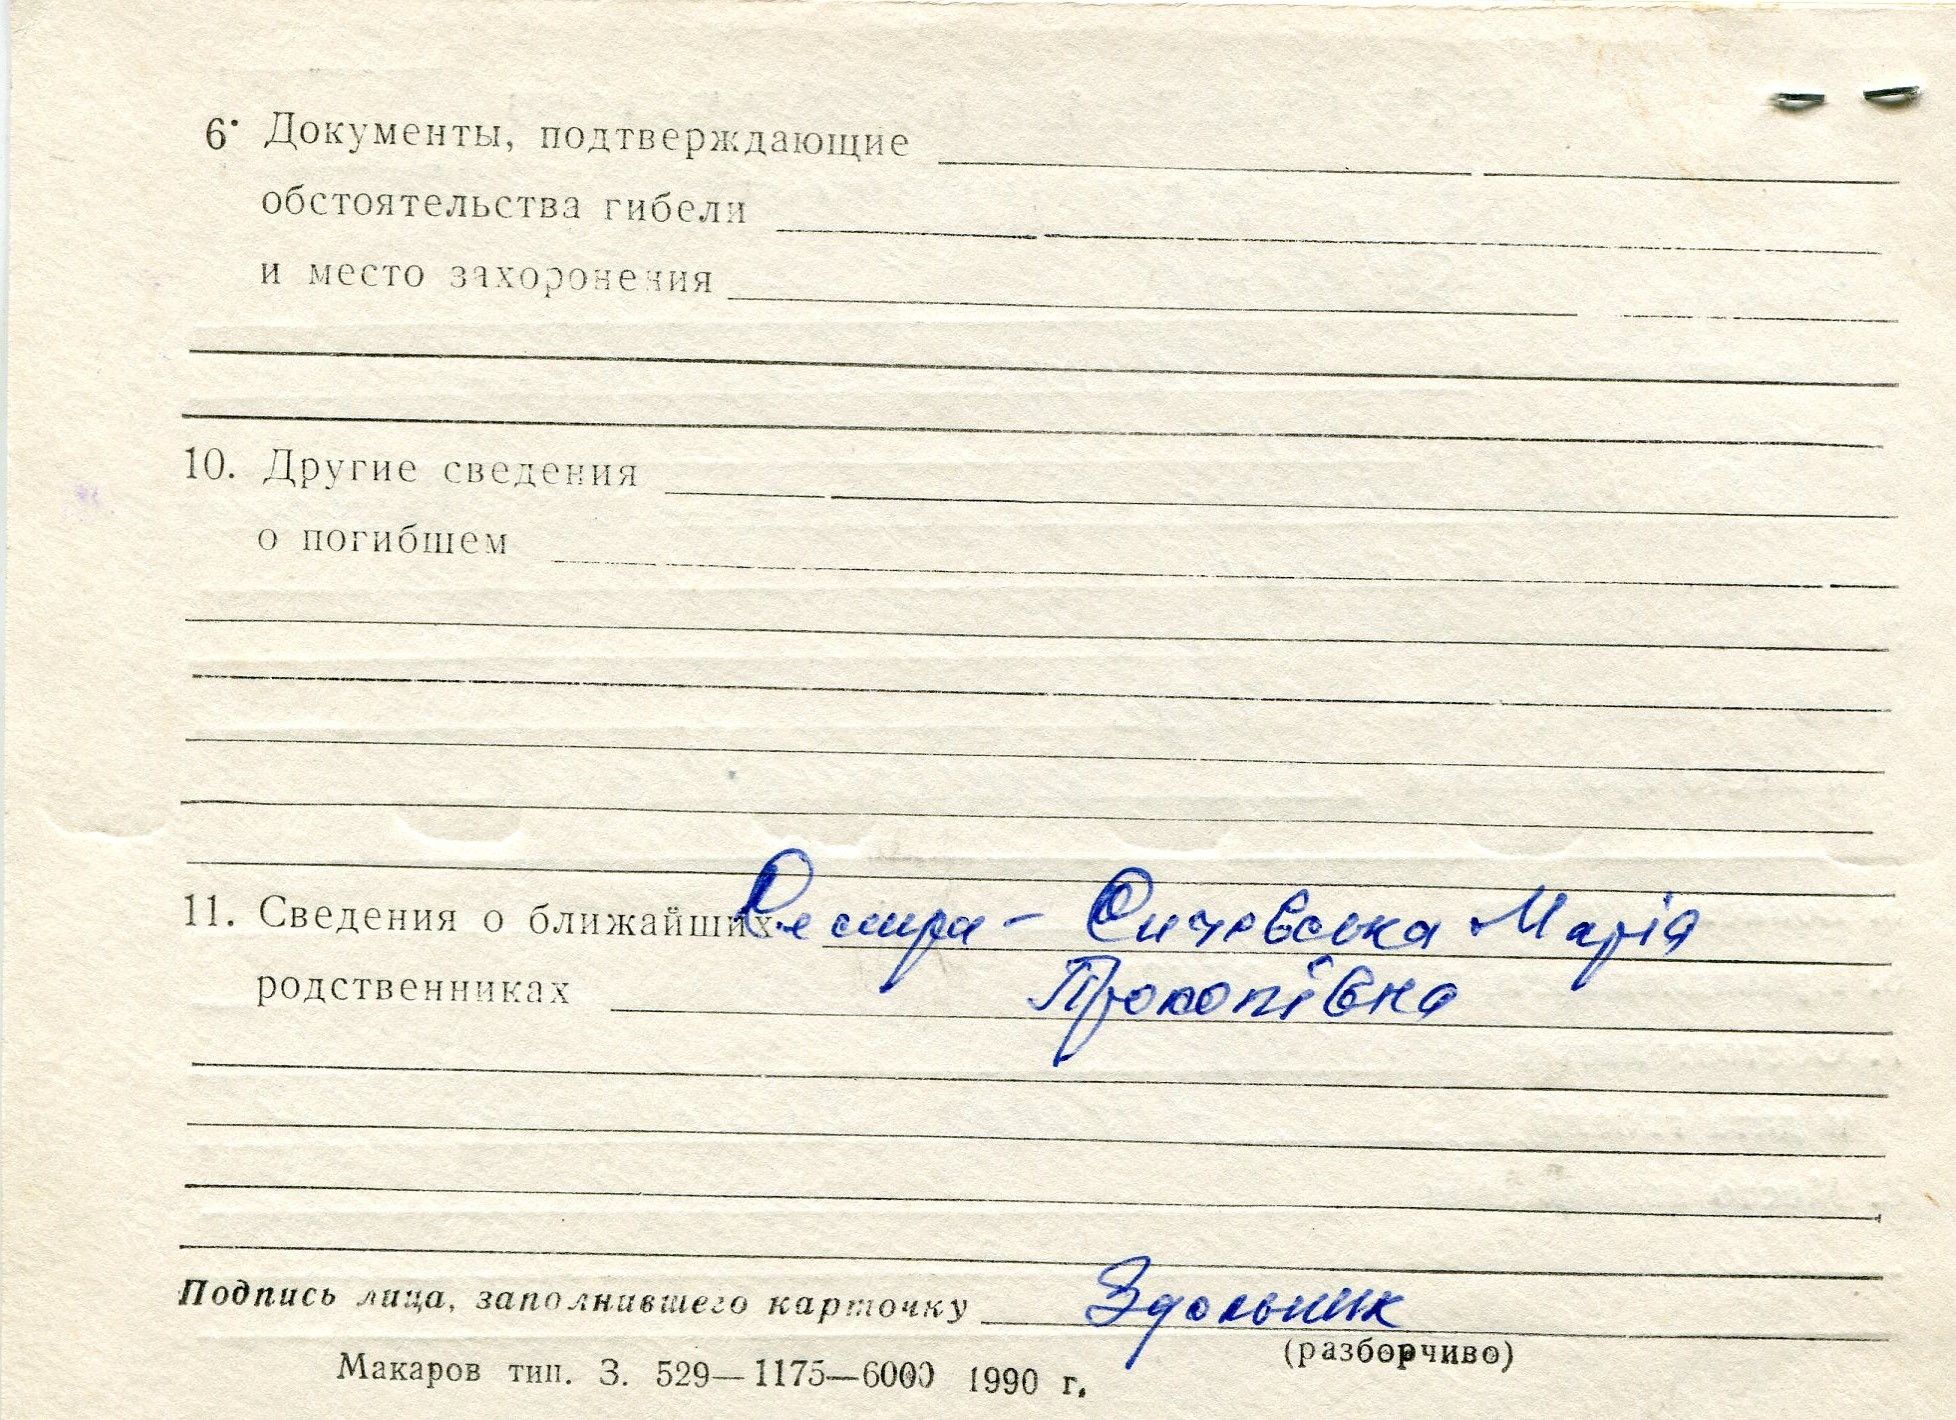 6. Документы, подтверждающие
обстоятельства гибели
и место захоронения
10. Другие сведения
о погибшем
11. Сведения о ближайших Сестра – Сичевська Марія
родственниках Прокопівна
Подпись лица, заполнившего карточку Здольник
(разборчиво)
Макаров тип. З. 529—1175—6000 1990 г.